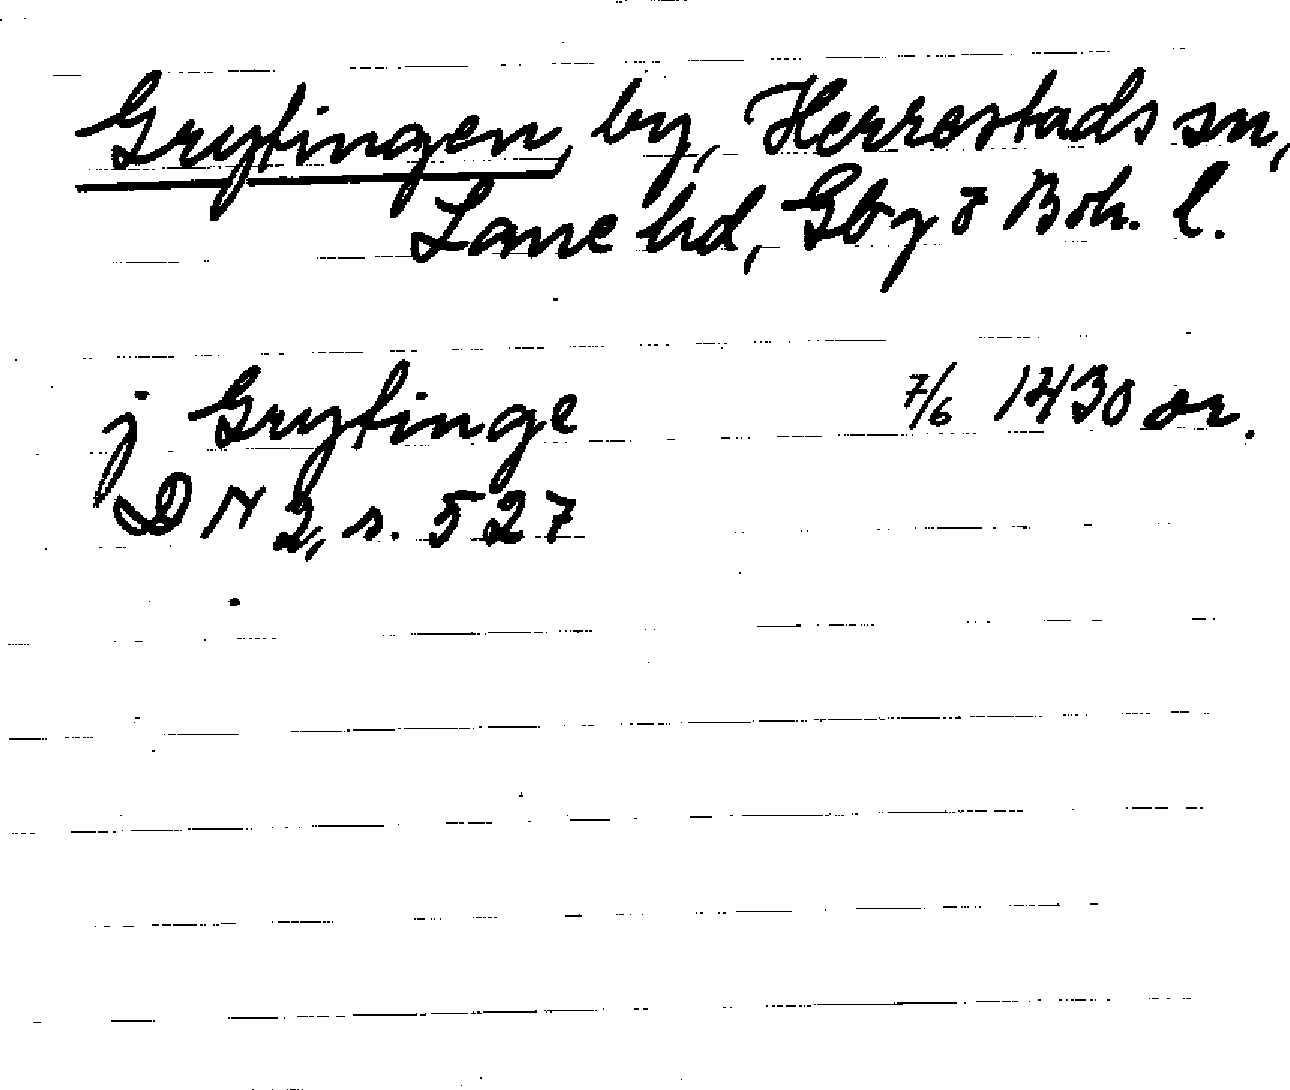 Gryfingen, by, Herrestads sn,
Lane hd, Gbg o Boh. l.
j Gryfinge 7/6 1430 or.
DN 2, s. 527